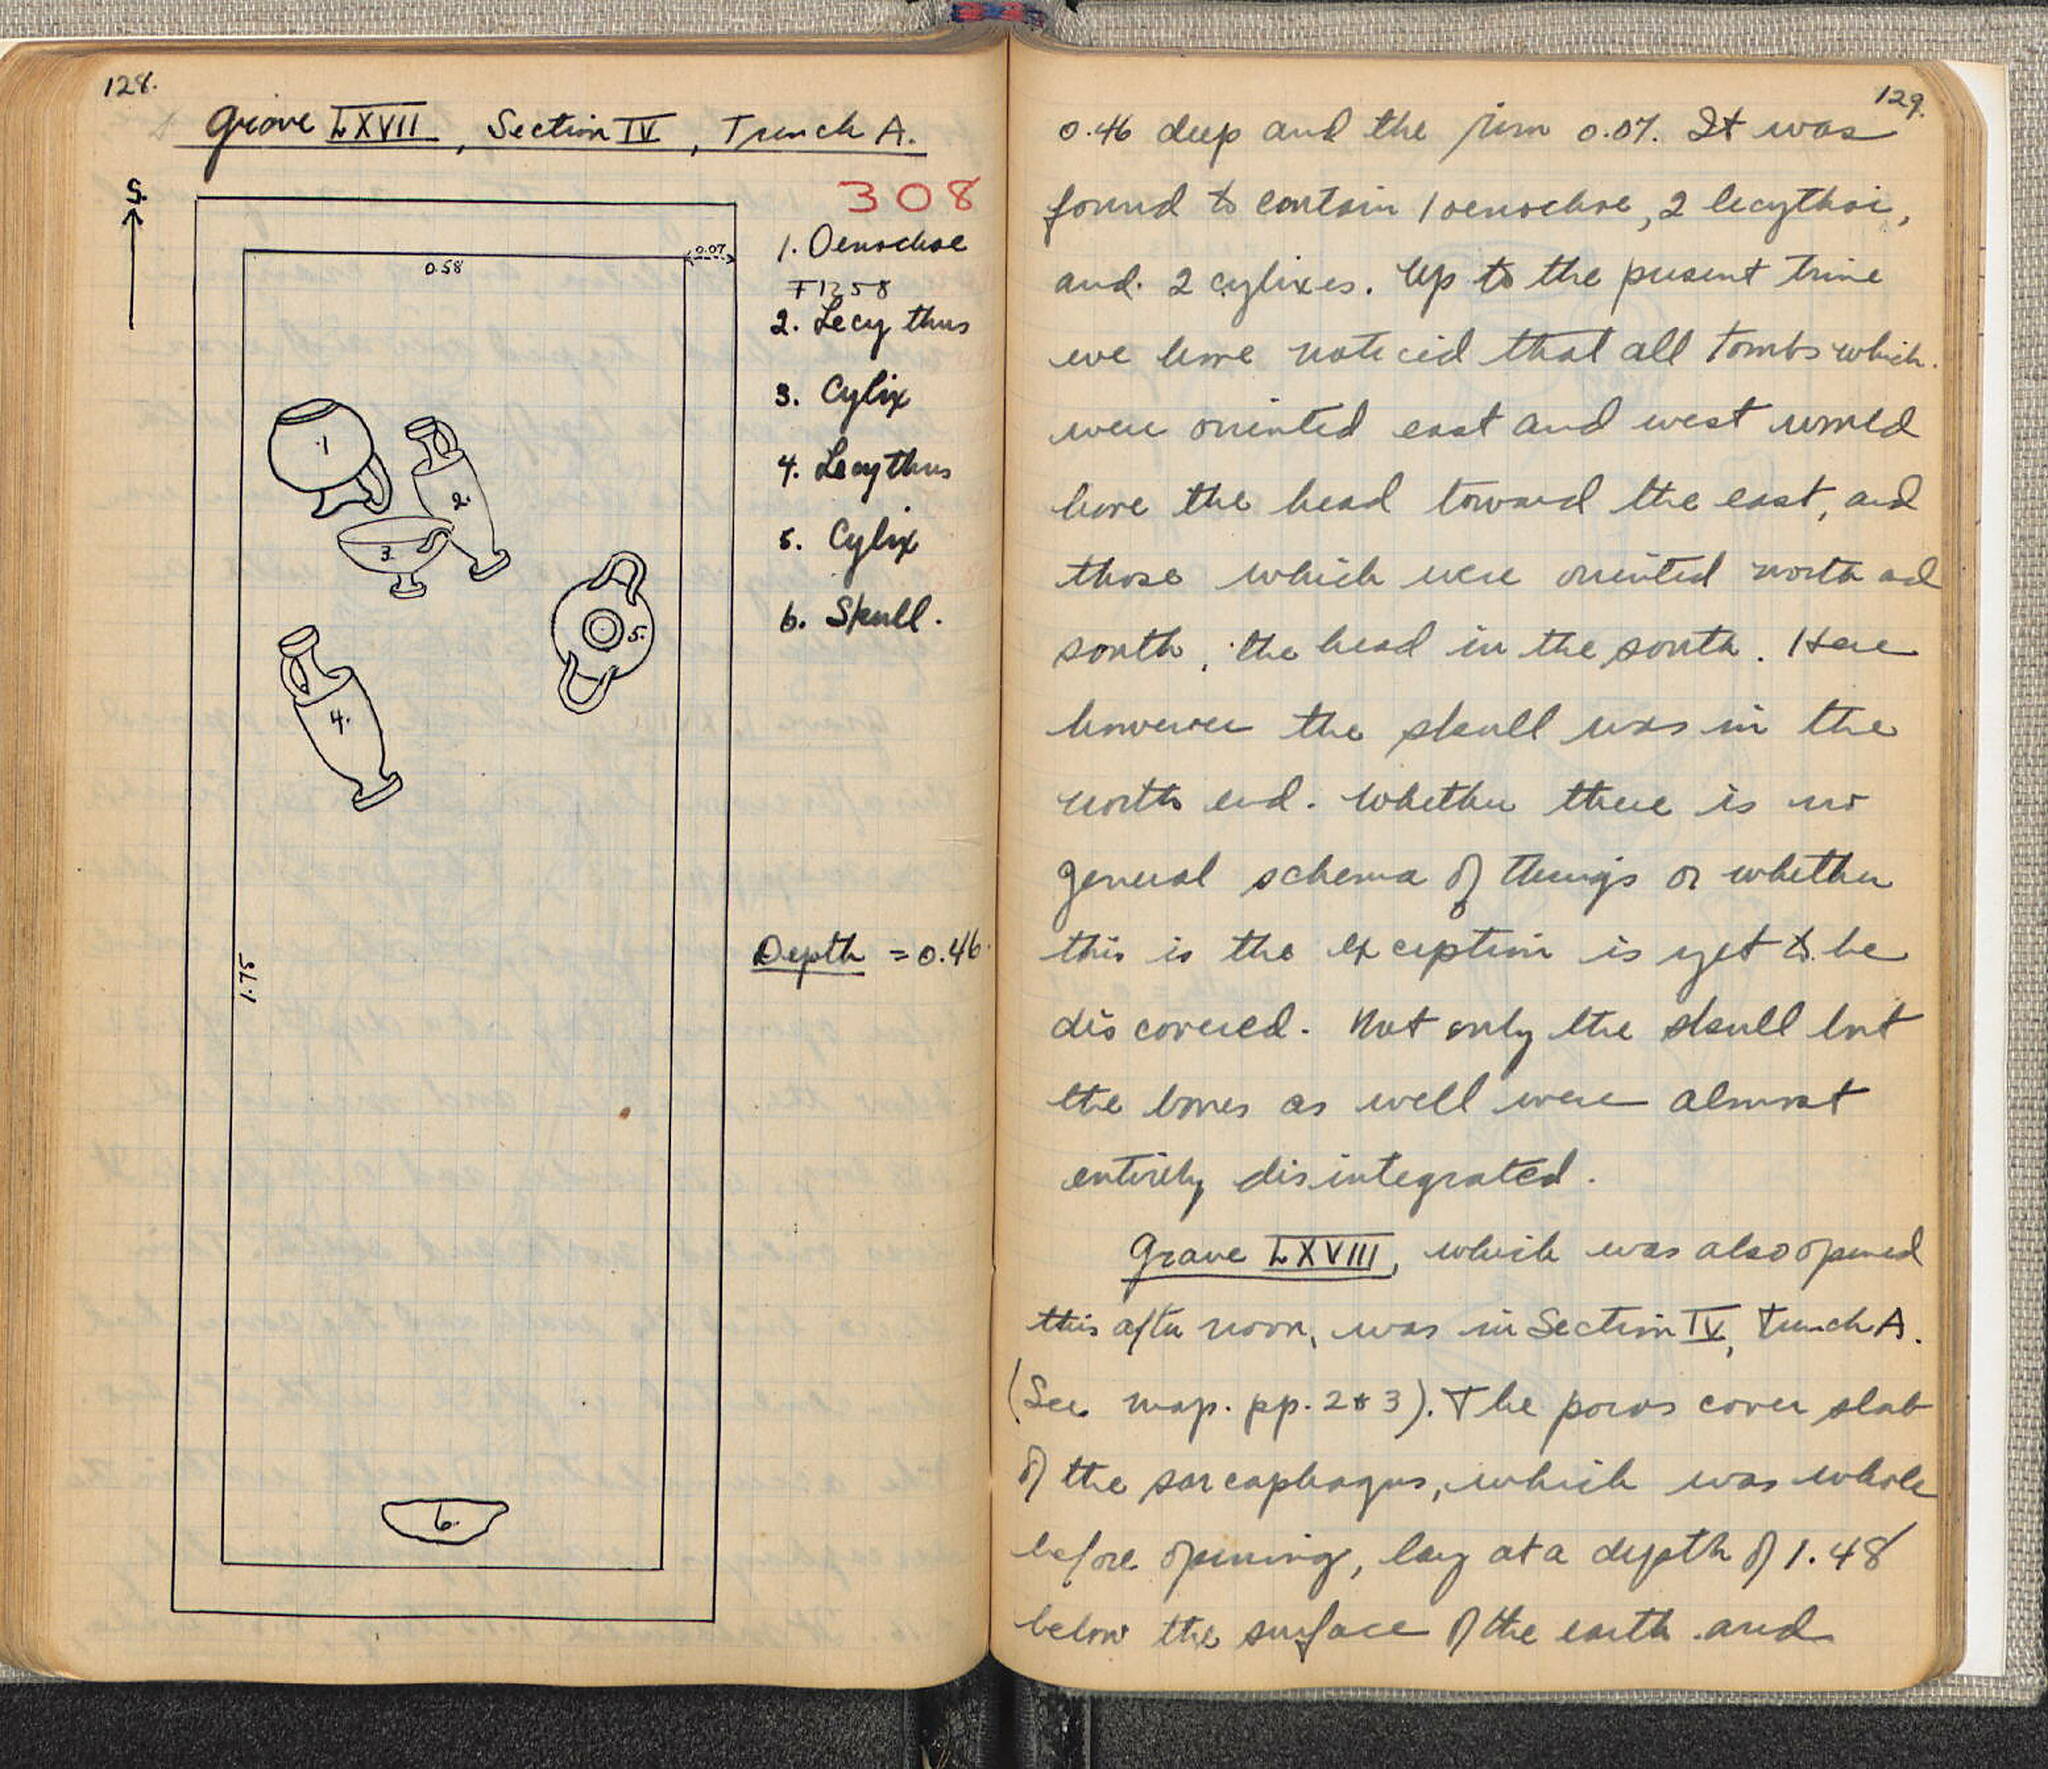 128.
Grave LXVII, Section IV, Trench A.
S.
308
0.58
0.07
1. Oenochoe
T1258
2. Lecythus
3. Cylix
4. Lecythus
5. Cylix
6. Skull.
1
2.
3
5.
4.
Depth = 0.46.
1.75
6.
129.
0.46 deep and the rim 0.07. It was
found to contain 1 oenochoe, 2 lecythoi,
and 2 cylixes. Up to the present time
we have noticed that all tombs which
were oriented east and west would
have the head toward the east, and
those which were oriented north and
south, the head in the south. Here
however the skull was in the
north end. Whether there is no
general schema of things or whether
this is the exception is yet to be
discovered. Not only the skull but
the bones as well were almost
entirely disintegrated.
Grave LXVIII, which was also opened
this afternoon, was in Section IV, Trench A.
(See map. pp. 2 & 3). The poros cover slab
of the sarcophagus, which was whole
before opening, lay at a depth of 1.48
below the surface of the earth and